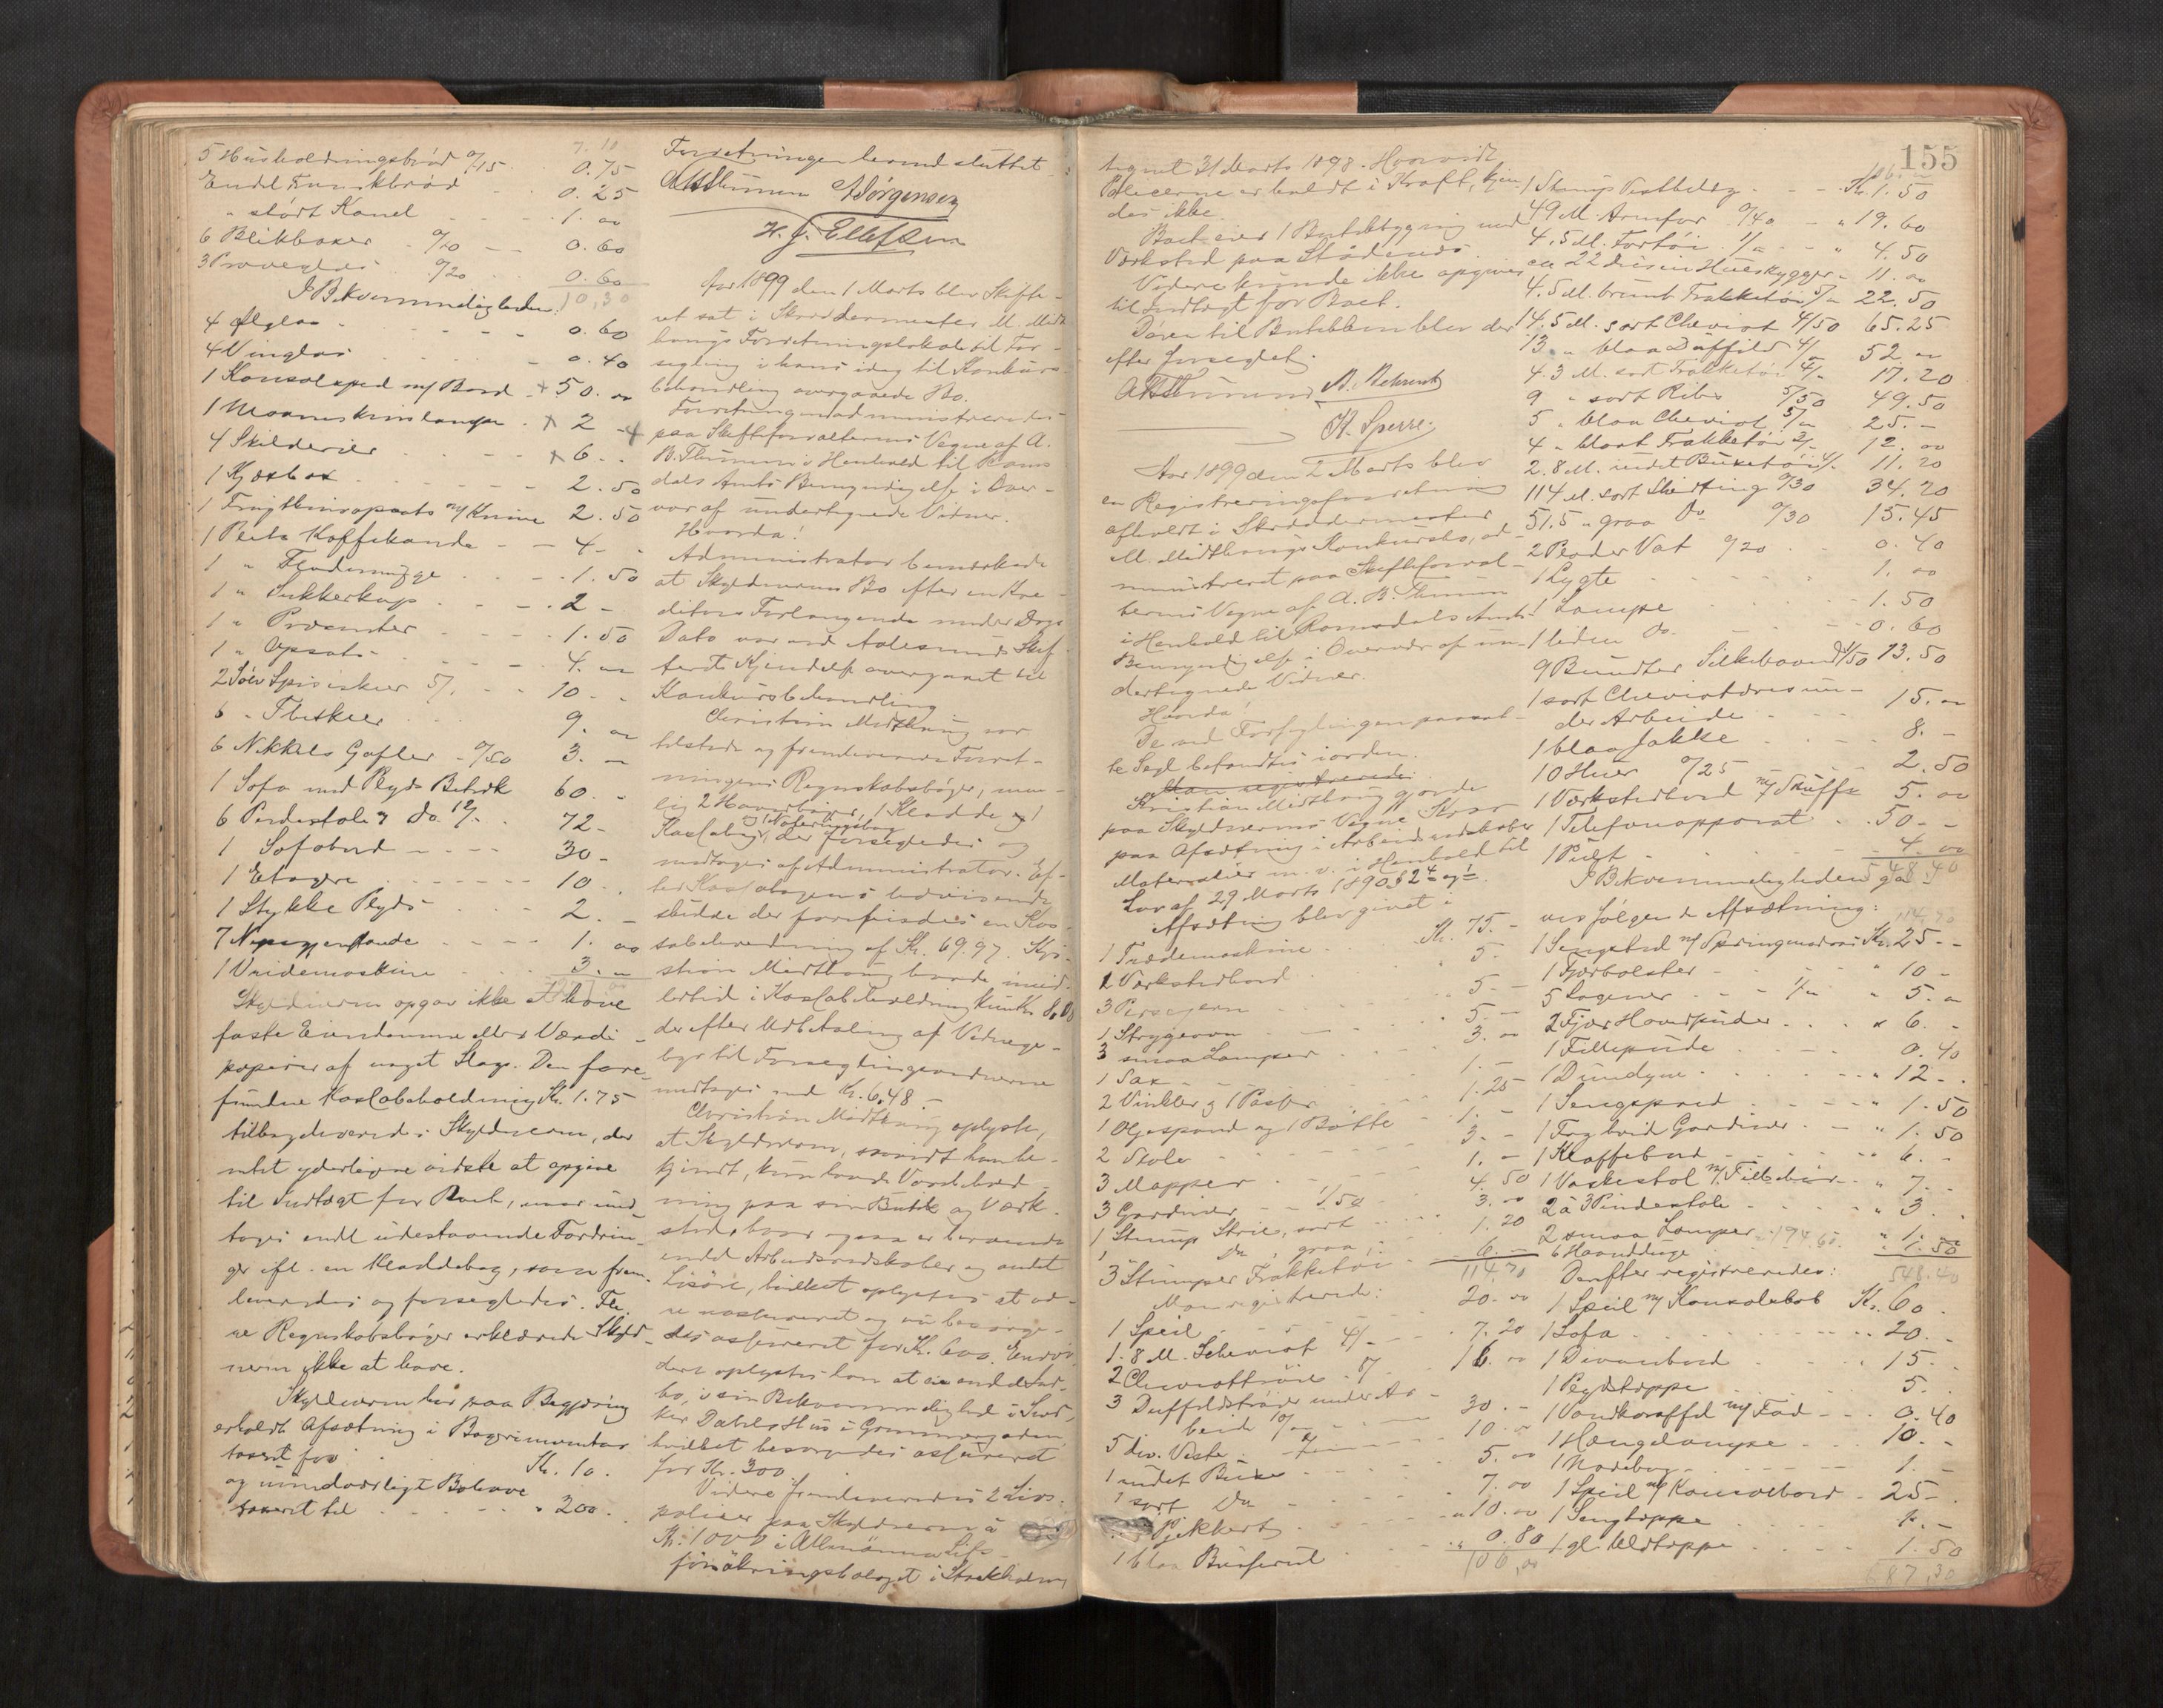 7. 10
5 Husholdningsbrød 0/15 0.75
Endel Franskbrød 0.25
" stødt Kanel 1. 00
6 Blikboxer 0/10 0.60
3 Prøveglas 0/20 0.60
10,30
I Bekvemmeligheden:
4 Ølglas 0.60
4 Vinglas 0.40
1 Konsolspeil m/ Bord x 50. 00
1 Maaneskinslampe x 2
4 Skilderier x 6
1 Kjøxbox 2.50
1 m/ Knive 2.50
1 Plets Kaffekande 4
1 " Flødemugge 1.50
1 " Sukkerkop 2
1 " 1.50
1 " Opsats 4. 00
2 Sølv Spiseskeer 5/ 10
6 " Theskeer 9. 00
6 Nikkels Gafler 0/50 3.
1 Sofa med Plyds Betræk 60.
6 Pindestole 3 do. 12/ 72
1 Sofabord 30
1 Etagere 10
1 Stykke Plyds 2.
7 1. 00
1 Vridemaskine 3.
Skyldneren opgav ikke at have
faste Eiendomme eller Værdi-
papirer af noget Slags. Den fore-
fundne Kassabeholdning Kr. 1.75
tilbageleveredes Skyldneren, der
intet yderligere vidste at opgive
til Indtægt for Boet, naar und-
tages endel udestaaende Fordrin-
ger ifl. en Kladdebog, som frem-
leveredes og forsegledes. Fle-
re Regnskabsbøger erklærede Skyld-
neren ikke at have.
Skyldneren har paa Begjæring
erholdt Afsætning i Bogerinventar
taxeret for Kr. 10.
og uundværligt Bohave
taxeret til " 200.
Forretningen hermed sluttet.
A B Thesen N Jørgensen
H. J. Ellefsen
Aar 1899 den 1 Marts blev Skifte-
ret sat i Skræddermester M. Midt-
bougs Forretningslokale til For-
segling i hans idag til Konkurs-
behandling overgaaede Bo.
Forretningen administreredes
paa Skifteforvalterens Vegne af A.
B. Thesen i Henhold til Roms-
dals Amts Bemyndigelse i Over-
vær af undertegnede Vidner.
Hvorda!
Administrator bemærkede
at Skyldnerens Bo efter en Kre-
ditors Forlangende under Dags
Dato var ved Aalesunds Skif-
terets Kjendelse overgaaet til
Konkursbehandling.
Christian Midtboug var
tilstede og fremleverede Forret-
ningens Regnskabsbøger, nem-
lig 2 Hovedbøger, 1 Kladde og 1
Kassabog, der forsegledes og
modtoges af Administrator. Ef-
ter Kassabogens Udvisende
skulde der forefindes en Kas-
sabeholdning af Kr. 69.97. Kri-
stian Midtboug havde imid-
lertid i Kassabeholdning kun Kr. 8,08
der efter Udbetaling af Vidnege-
byr til Forseglingsvidnerne
modtoges med Kr. 6.48.
Christian Midtboug oplyste,
at Skyldneren, saavidt ham be-
kjendt, kun havde Varebehold-
ning paa sin Butik og Værk-
sted, hvor ogsaa er beroende
endel Arbeidsredskaber og andet
Løsøre, hvilket oplystes at væ-
re uassureret og nu besørge-
des assureret for Kr. 600. Endvi-
dere oplystes han at eie endel Ind-
bo, i sin Bekvemmelighed i Sned-
ker Dahls Hus i Grimmergaden,
hvilket besørgedes assureret
for Kr. 300.
Videre fremleveredes 2 Livs-
policer paa Skyldneren à
Kr. 1000 i Allmänna Lifs-
försäkringsbolaget i Stockholm
155
tegnet 31 Marts 1898. Hvorvidt
Policerne er holdt i Kraft, kjen-
des ikke.
Boet eier 1 Butikbygning med
Værksted paa Stedet.
Videre kunde ikke opgives
til Indtægt for Boet.
Døren til Butikken blev der-
efter forseglet.
A B Thesen M. Behrendt
K. Sperre.
Aar 1899 den 2 Marts blev
en Registreringsforretning
afholdt i Skræddermester
M. Midtbougs Konkursbo, ad-
ministreret paa Skifteforval-
terens Vegne af A. B. Thesen
i Henhold til Romsdals Amts
Bemyndigelse i Overvær af un-
dertegnede Vidner.
Hvorda!
De ved Forseglingen paasat-
te Segl befandtes iorden.
Man registrerede:
Kristian Midtboug gjorde
paa Skyldnerens Vegne Krav
paa Afsætning i Arbeidsredskaber
Materialier m. v. i Henhold til
Lov af 29 Marts 1890 § 2 4 og 1.
Afsætning blev givet i
1 Trædemaskine Kr. 75.
1 Værkstedbord 5
3 Persejern 5
1 Strygeovn 5.
3 smaa Lamper 3. 00
1 Sax 1.
2 Vinkler og 1 Passer 1.25
1 Oljespand og 1 Bøtte 1.
2 Stole 3.
3 Mapper 1.
3 Gardiner 1/50 4.50
1 Stump Strie, sort 3. 00
1 " Do, graa 1.20
3 Stumper Frakketøi 6.
114.70
Man registrerede:
1 Speil 20. 00
1.8 M. Scheviot 4/ 7.20
2 Cheviottrøie 8/ 16. 00
3 Duffeldstrøier under Ar-
beide 10/ 30.
5 div. Veste 2/ 10.
1 undet Buxe 5. 00
1 sort Do 7. 00
Pjekkert 10. 00
1 blaa Buseroul 0.80
106,00
106.
1 Stump Vestbelæg Kr. 1.50
49 M. Armfor 0/40 " 19.60
4.5 M. Fortøi 1/ " 4.50
ca 22 Dusin Hueskygger 11. 00
4.5 M. brunt Frakketøi 5/ 22.50
14.5 M. sort Cheviot 4/50 65.25
13 " blaa Duffeld 4/ 52. 00
4.3 M. sort Frakketøi 4/ 17.20
9 " sort Ribs 5/50 49.50
5 " blaa Cheviot 5/ 25.
4 " blaat Frakketøi 3/ 12. 00
2.8 M. undet Buxetøi 4/ 11.20
114 M. sort Shirting 0/30 34.20
51.5 " graa Do 0/30 15.45
2 Plader Vat 0/20 0.40
1 Lygte 1. 00
1 Lampe 1.50
1 liden do. 0.60
9 Bundter Silkebaand 1/50 13.50
1 sort Cheviotdres un-
der Arbeide 15. 00
1 blaa Jakke 8.
10 Huer 0/25 2.50
1 Værkstedbord m/ Skuffe 5. 00
1 Telefonapparat 50
1 Pult 4. 00
548.40
I Bekvemmeligheden ga-
ves følgende Afsætning: 114,70
1 Sengsted m/ Springmadras Kr. 25
1 Fjærbolster " 10
5 Lagener 1/ " 5.
2 Fjær Hovedpuder " 6.
1 Fillepude 0.40
1 Dundyne " 12
1 Sengspread " 1.50
1 Fag hvid Gardiner " 1.50
1 Klaffebord 6.
1 Vaskestol m/ Tilbehør " 7.
2 à 3 Pindestole " 3
2 smaa Lamper 194.60 " 1.
6 Haandduge 1.50
Derefter registreredes: 548.40
1 Speil m/ Konsolebord Kr. 60.
1 Sofa 20.
1 Divanbord 15.
1 Plydstæppe 5.
1 Vandkaraffel m/ Fad 0.40
1 Hængelampe 10.
1 Nodebog 1.
1 Speil m/ Konsolbord 25
1 Sengtæppe
1 gl. Uldtæppe 1.50
687,30